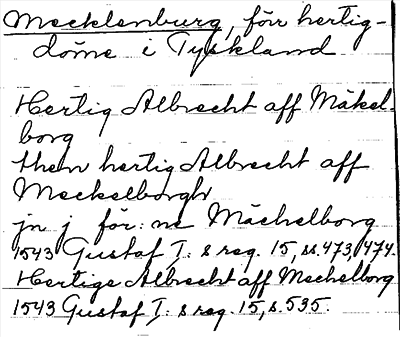 Mecklenburg, förr hertig-
döme i Tyskland
Hertig Albrecht aff Mäkel-
borg
then hertig Albrecht aff
Meckelborgh
jn j för: ne Mächelborg
1543 Gustaf I: s reg. 15, ss. 473, 474.
Hertige Albrecht aff Mechelborg
1543 Gustaf I: s reg. 15, s. 535.